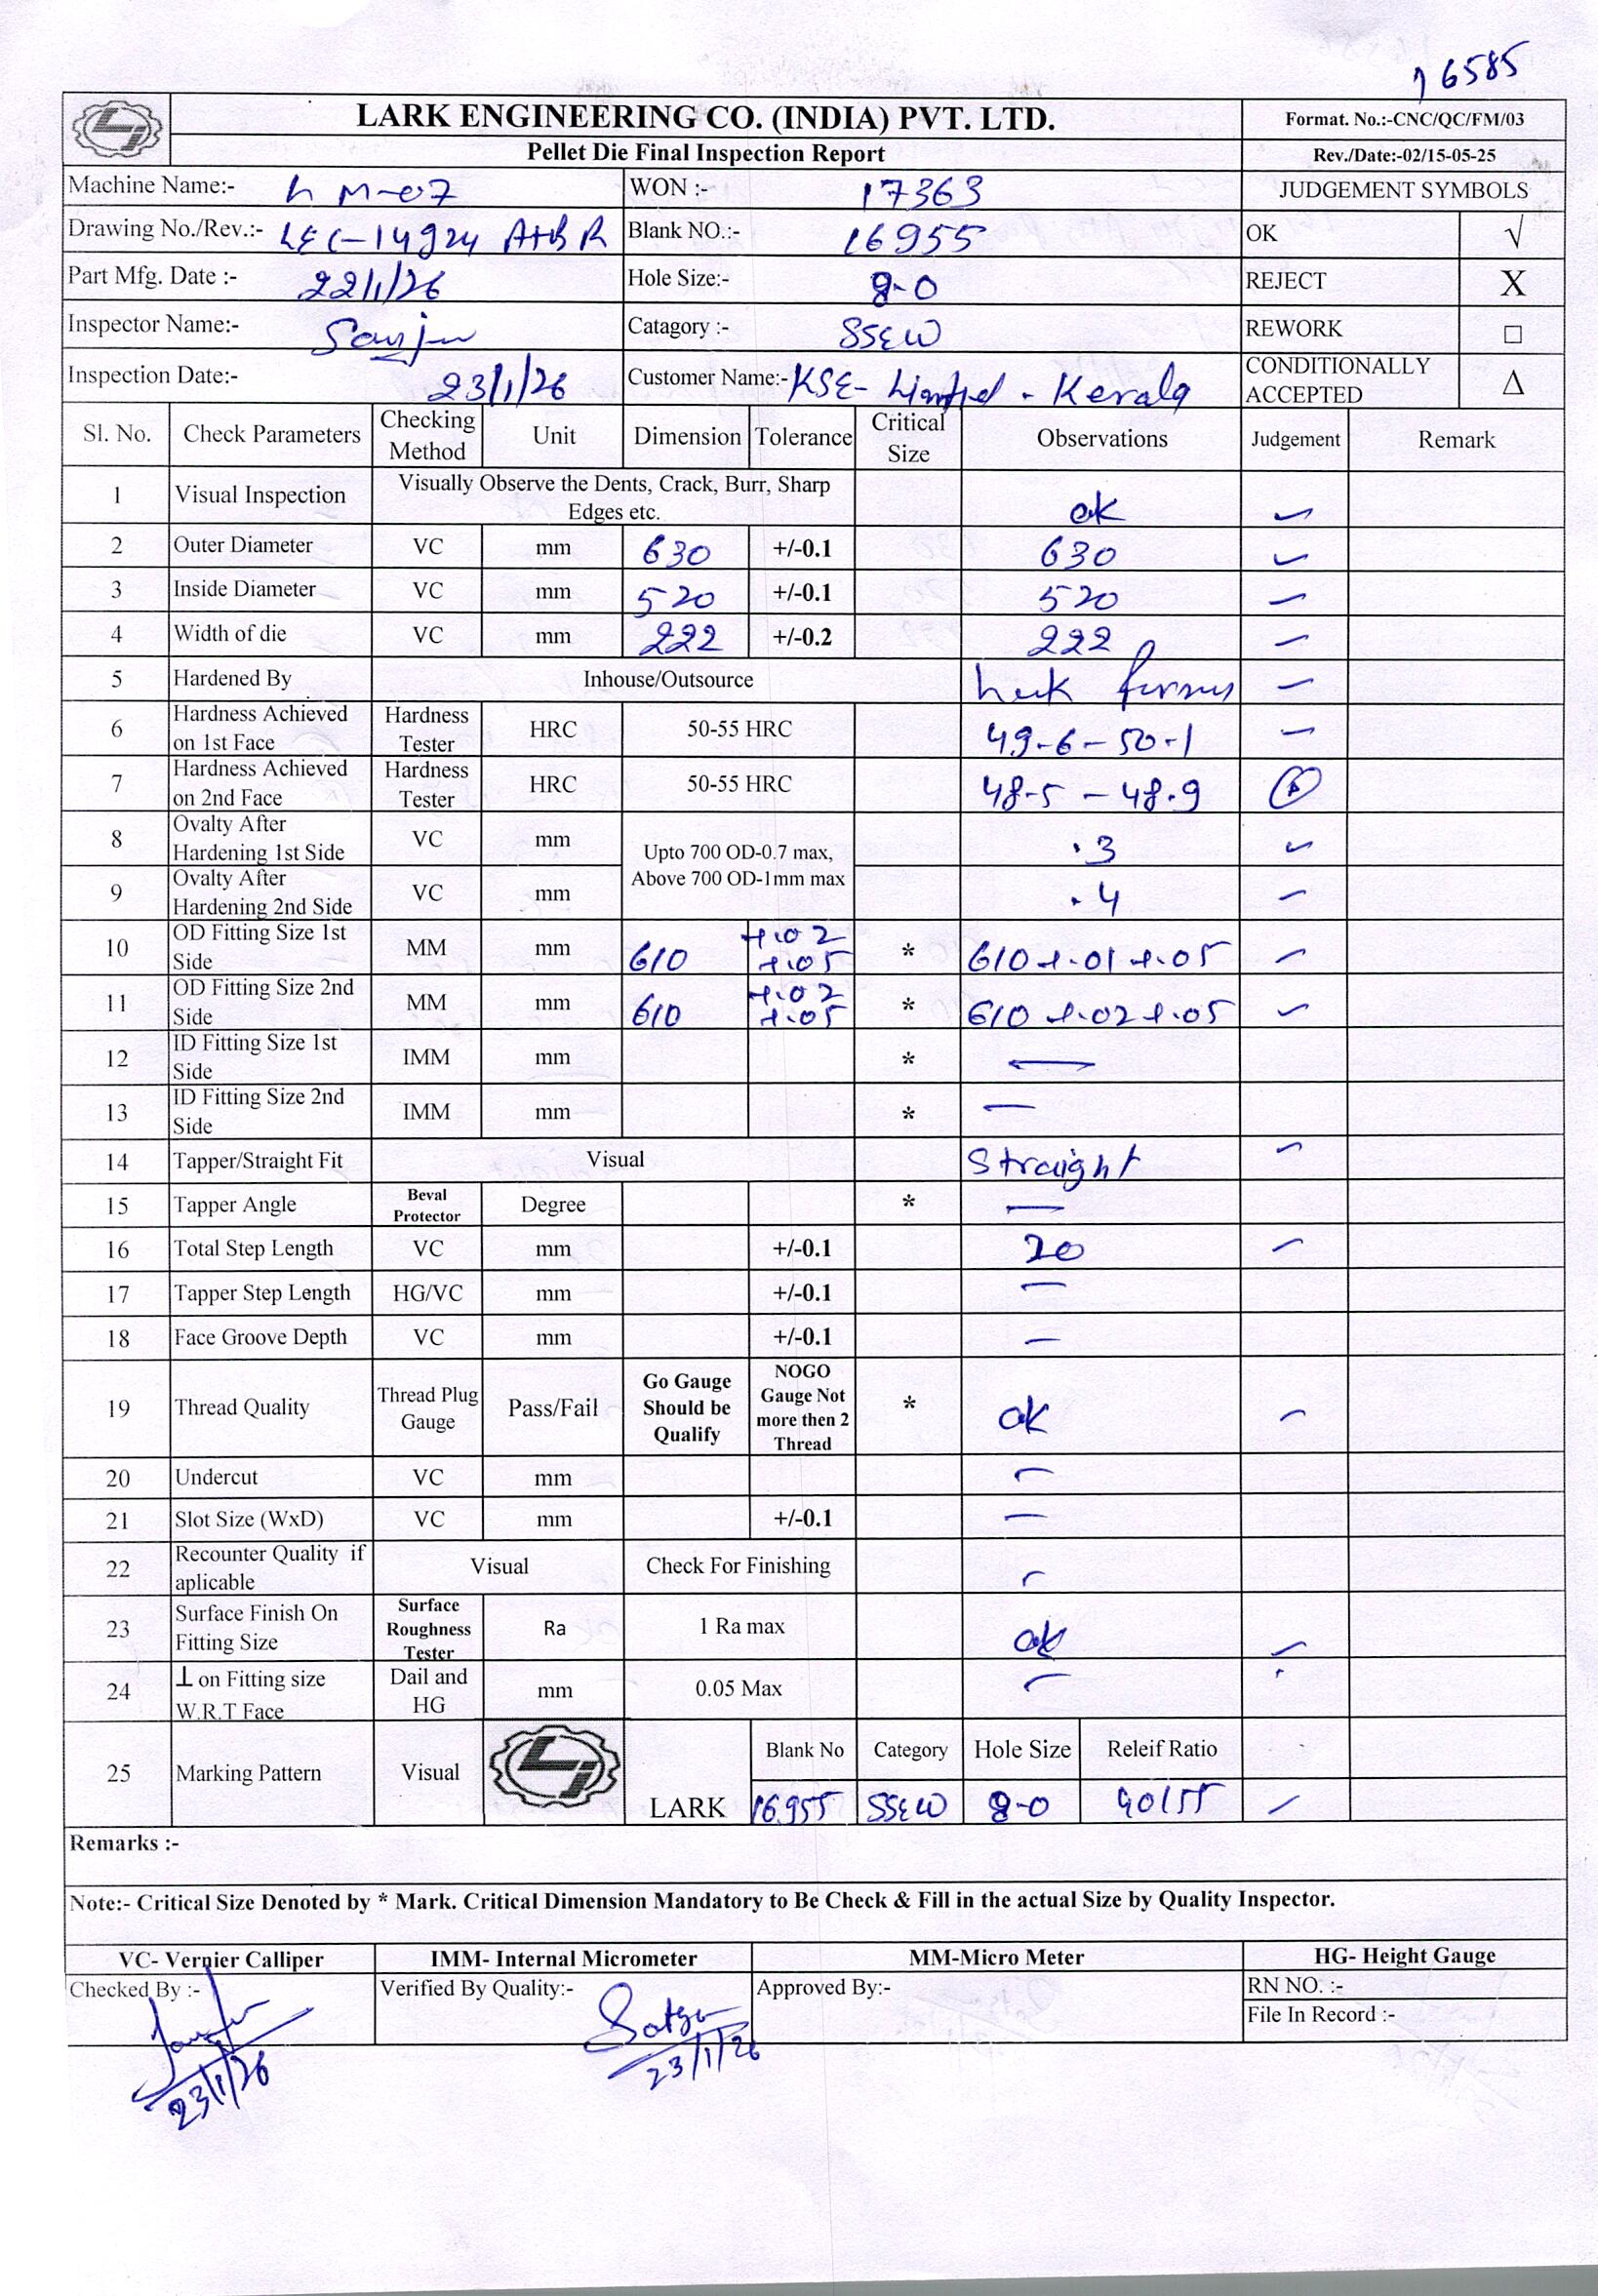 16585
LARK ENGINEERING CO. (INDIA) PVT. LTD.
Format. No.:-CNC/QC/FM/03
Pellet Die Final Inspection Report
Rev./Date:-02/15-05-25
Machine Name:- LM-07 WON :- 17363 JUDGEMENT SYMBOLS
Drawing No./Rev.:- LEC-14924 A+B R Blank NO.:- 16955 OK √
Part Mfg. Date :- 22/1/26 Hole Size:- 8-0 REJECT X
Inspector Name:- Sanju Catagory :- SSEW REWORK □
Inspection Date:- 23/1/26 Customer Name:- KSE- Limited - Kerala CONDITIONALLY ACCEPTED Δ
Sl. No. Check Parameters Checking Method Unit Dimension Tolerance Critical Size Observations Judgement Remark
1 Visual Inspection Visually Observe the Dents, Crack, Burr, Sharp Edges etc. ok ✓
2 Outer Diameter VC mm 630 +/-0.1 630 ✓
3 Inside Diameter VC mm 520 +/-0.1 520 ✓
4 Width of die VC mm 222 +/-0.2 222 ✓
5 Hardened By Inhouse/Outsource ✓
6 Hardness Achieved on 1st Face Hardness Tester HRC 50-55 HRC 49-6-50-1 ✓
7 Hardness Achieved on 2nd Face Hardness Tester HRC 50-55 HRC 48-5-48.9
8 Ovalty After Hardening 1st Side VC mm Upto 700 OD-0.7 max, Above 700 OD-1mm max .3 ✓
9 Ovalty After Hardening 2nd Side VC mm .4 ✓
10 OD Fitting Size 1st Side MM mm 610 +.02 +.05 * 610 +.01 +.05 ✓
11 OD Fitting Size 2nd Side MM mm 610 +.02 +.05 * 610 +.02 +.05 ✓
12 ID Fitting Size 1st Side IMM mm * —
13 ID Fitting Size 2nd Side IMM mm * —
14 Tapper/Straight Fit Visual Straight ✓
15 Tapper Angle Beval Protector Degree * —
16 Total Step Length VC mm +/-0.1 20 ✓
17 Tapper Step Length HG/VC mm +/-0.1 —
18 Face Groove Depth VC mm +/-0.1 —
19 Thread Quality Thread Plug Gauge Pass/Fail Go Gauge Should be Qualify NOGO Gauge Not more then 2 Thread * ok ✓
20 Undercut VC mm —
21 Slot Size (WxD) VC mm +/-0.1 —
22 Recounter Quality if aplicable Visual Check For Finishing —
23 Surface Finish On Fitting Size Surface Roughness Tester Ra 1 Ra max ok ✓
24 ⊥ on Fitting size W.R.T Face Dail and HG mm 0.05 Max —
25 Marking Pattern Visual LARK Blank No Category Hole Size Releif Ratio
16955 SSEW 8-0 90/55 ✓
Remarks :-
Note:- Critical Size Denoted by * Mark. Critical Dimension Mandatory to Be Check & Fill in the actual Size by Quality Inspector.
VC- Vernier Calliper IMM- Internal Micrometer MM-Micro Meter HG- Height Gauge
Checked By :- Verified By Quality:- Approved By:- RN NO. :-
File In Record :-
23/1/26 Satya 23/1/26